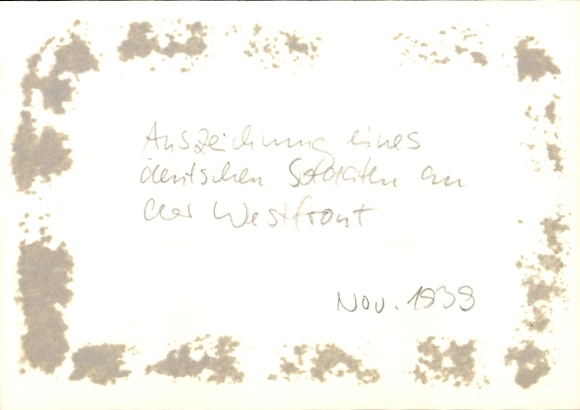 Auszeichnung eines
deutschen Soldaten an
der Westfront
Nov. 1939